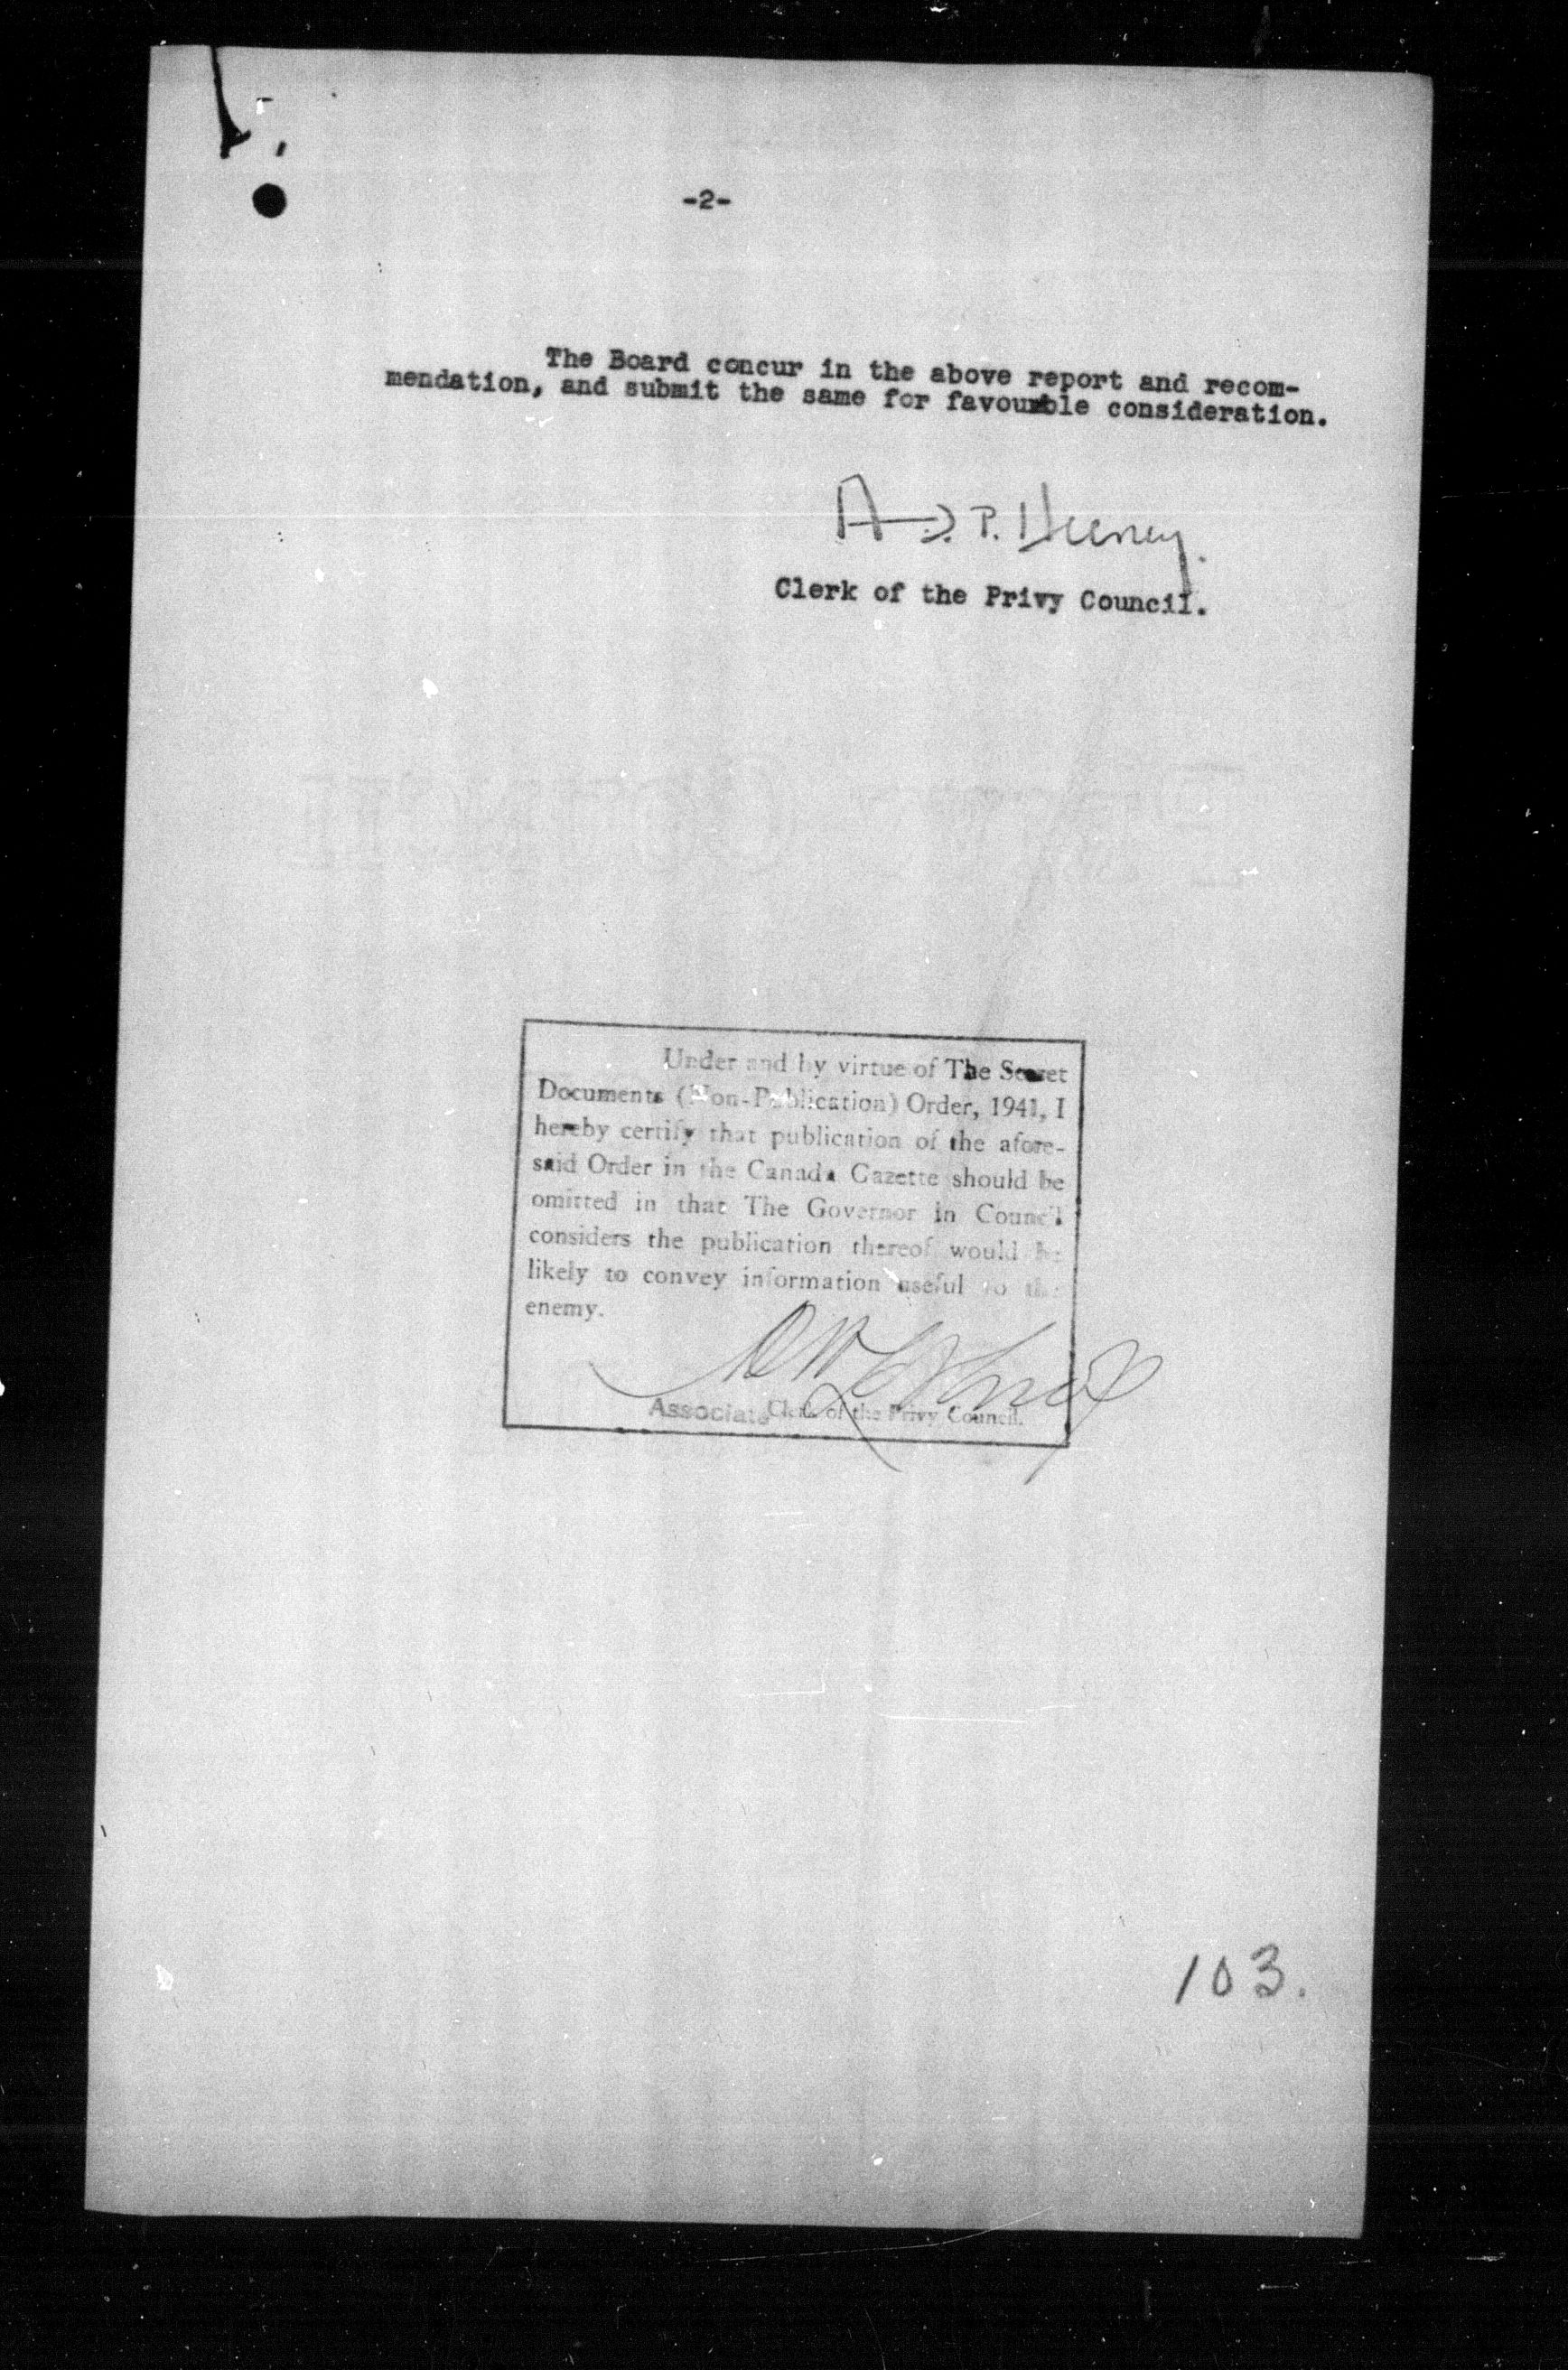 -2-
The Board concur in the above report and recom-
mendation, and submit the same for favourable consideration.
A.D.P. Heeney.
Clerk of the Privy Council.
Under and by virtue of The Secret
Documents (Non-Publication) Order, 1941, I
hereby certify that publication of the afore-
said Order in the Canada Gazette should be
omitted in that The Governor in Council
considers the publication thereof would be
likely to convey information useful to the
enemy.
Associate Clerk of the Privy Council.
103.